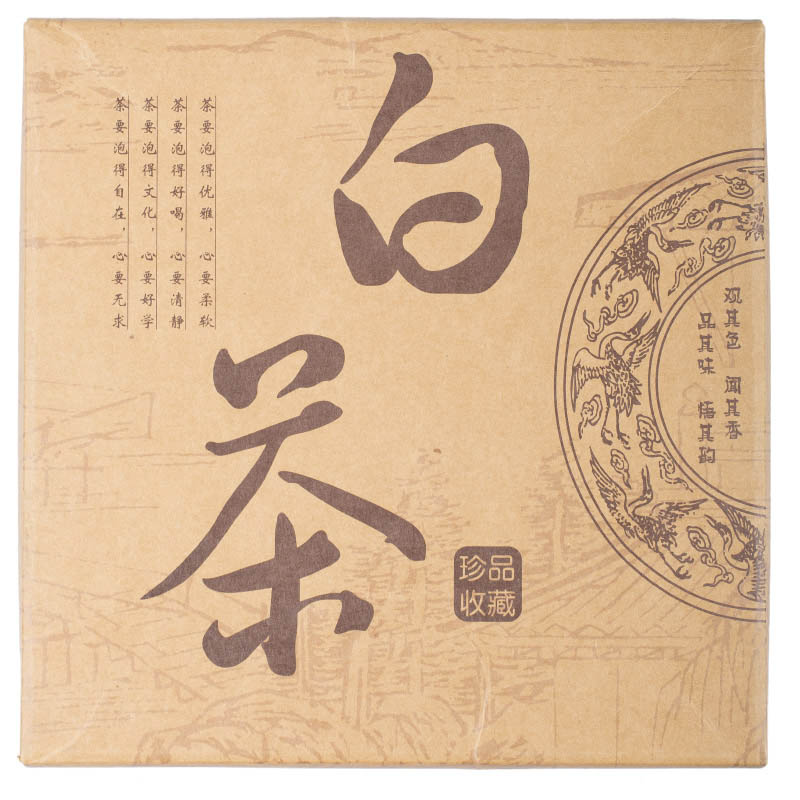 白茶
茶要泡得优雅，心要柔软
茶要泡得好喝，心要清静
茶要泡得文化，心要好学
茶要泡得自在，心要无求
观其色 闻其香
品其味 悟其韵
珍品
收藏